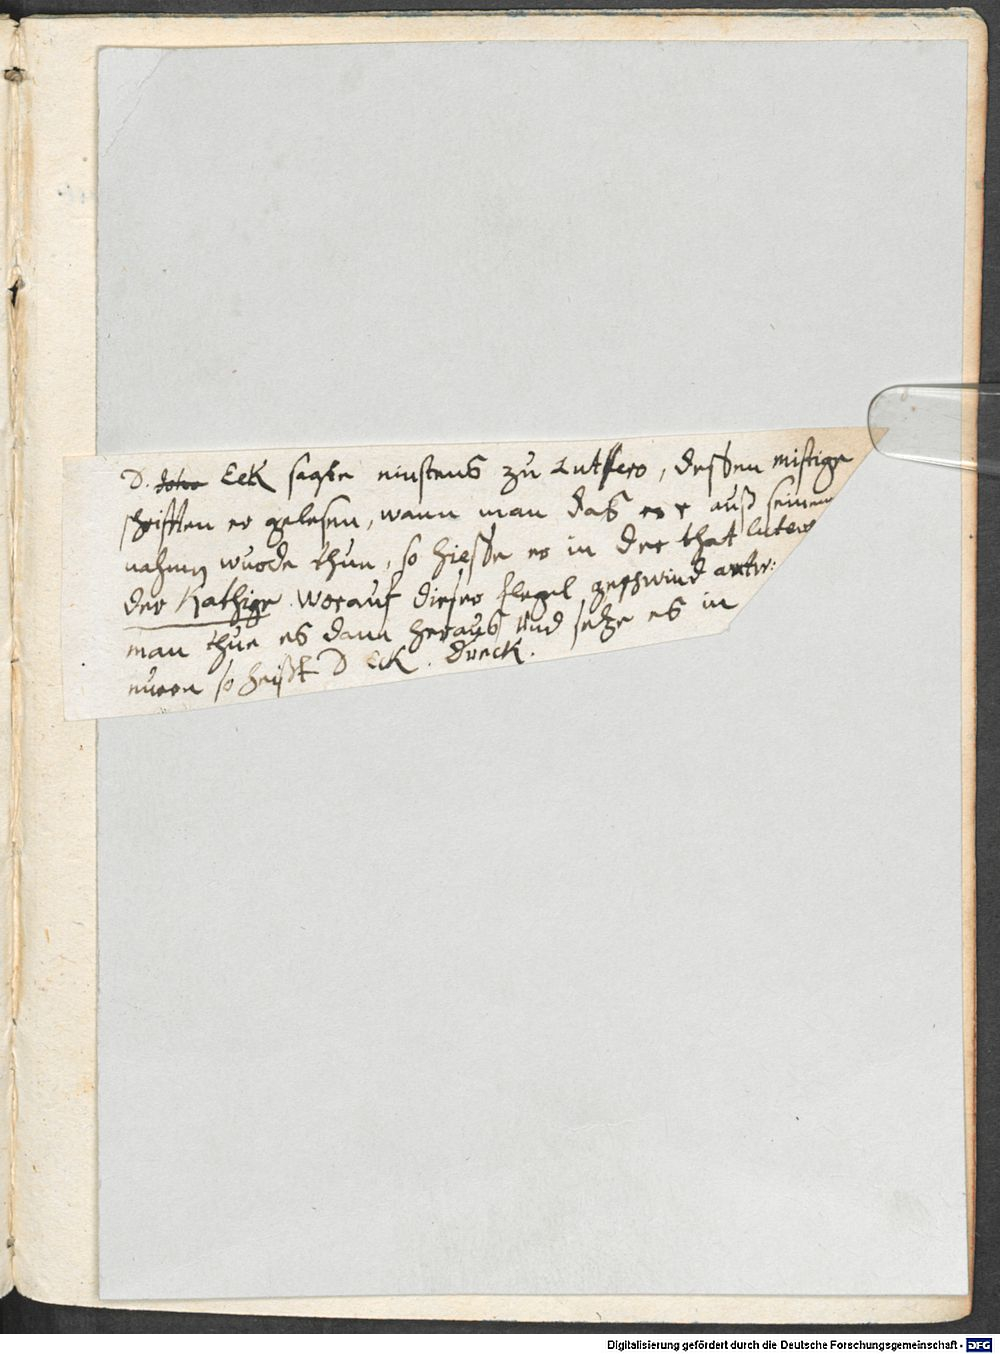 D. John Eck sagte einstens zu Luthero, dessen mistige
schrifften er gelesen, wann man das er r auß seinem
nahmen wurde thun, so hiesse er in der that luter
der Kathige. Worauf dieser flegel geschwind antw:
man thue es dann heraus und setze es in
euren so heißt D Eck. Dreck.
Digitalisierung gefördert durch die Deutsche Forschungsgemeinschaft - DFG